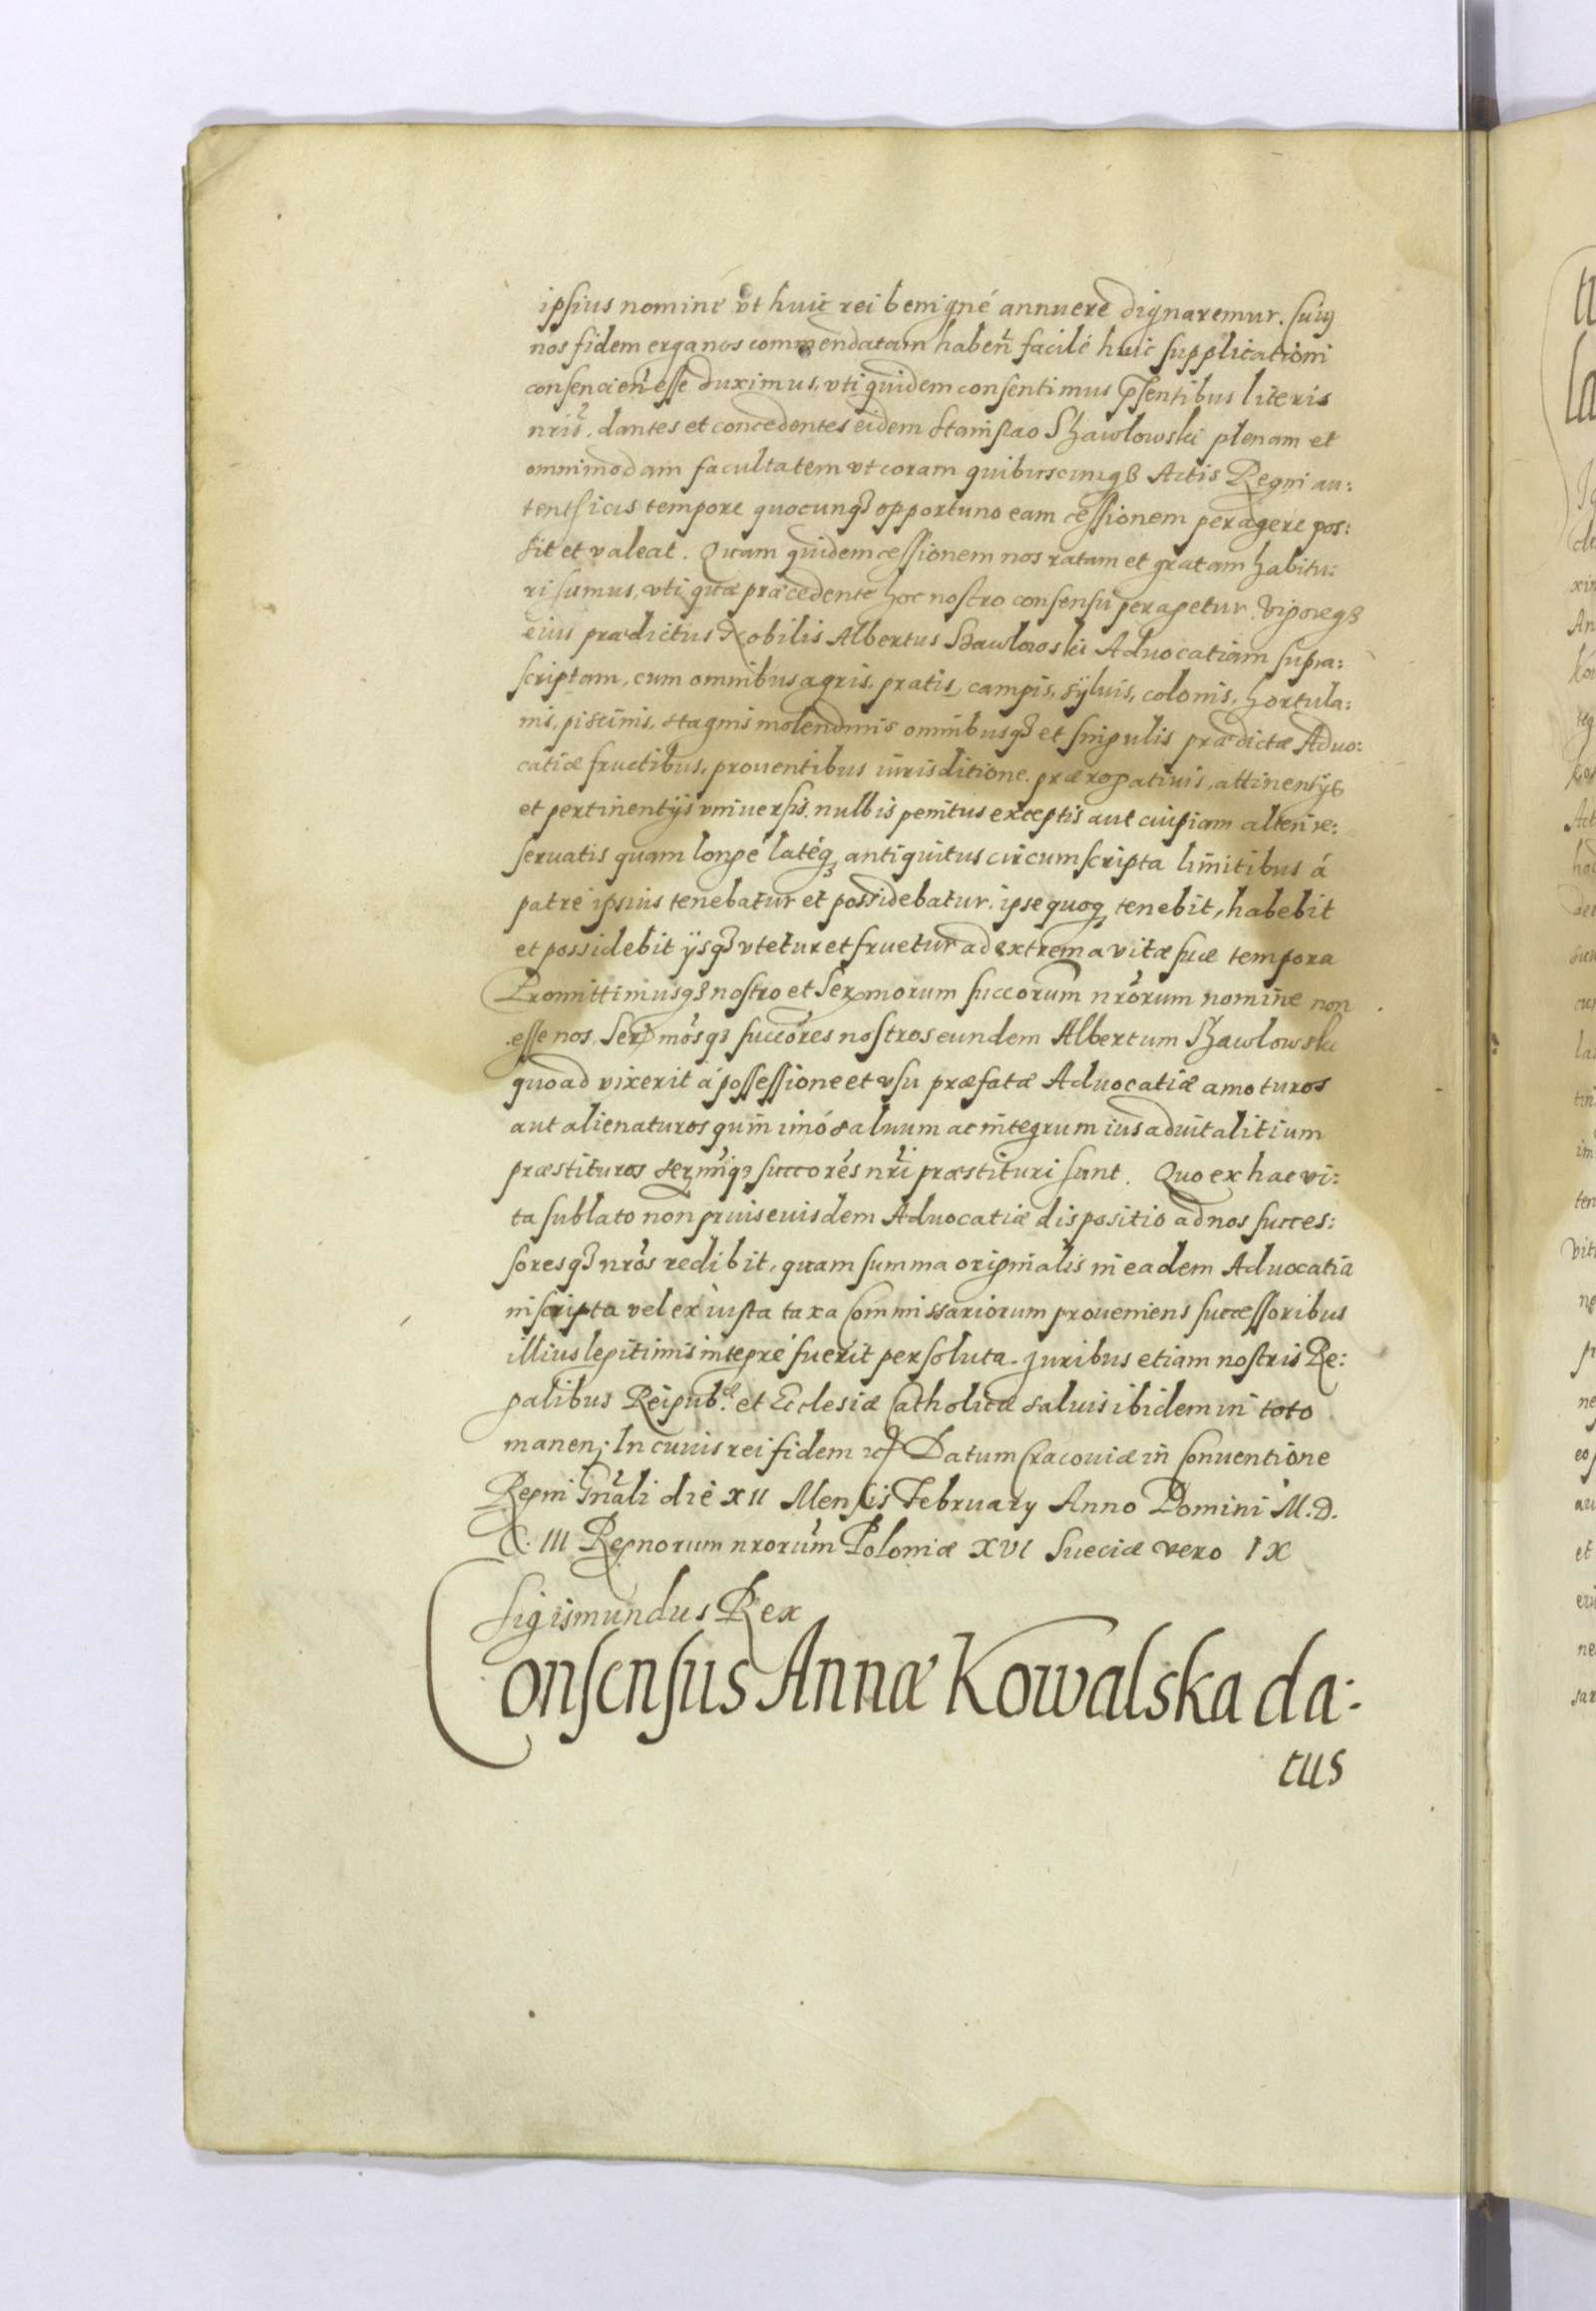 ipsius nomine vt huic rei benigné annuere dignaremur. Cuius
nos fidem erga nos commendatam haben̄ facilé huic supplicationi
consencien̄ esse duximus, vti quidem consentimus p̄sentibus literis
nris̄. dantes et concedentes eidem Stanislao Szawlowski plenam et
omnimodam facultatem vt coram quibuscunqꝫ Actis Regni au:
tenticis tempore quocunqꝫ opportuno eam cessionem peragere pos:
sit et valeat. Quam quidem cessionem nos ratam et gratam habitu:
ri sumus, vti quæ præcedente hoc nostro consensu peragetur. Vigoreqꝫ
eius prædictus Nobilis Albertus Szawlowski Aduocatiam supra:
scriptam, cum omnibus agris, pratis, campis, sÿluis, colonis, hortula:
nis, piscinis, stagnis molendinis omnibusqꝫ et singulis prædictæ Aduo:
catiæ fructibus, prouentibus iurisditione. prærogatiuis, attinensÿs
et pertinentÿs vniuersis. nullis penitus exceptis aut cuipiam alteri re:
seruatis quam longé latéqꝫ antiquitus circumscripta limitibus á
patre ipsius tenebatur et possidebatur. ipse quoqꝫ tenebit, habebit
et possidebit ÿsqꝫ vtetur et fruetur ad extrema vitæ suæ tempora
Promittimusqꝫ nostro et Serᵐorum succorum nrōrum nomine non
esse nos Serᵐosqꝫ succōres nostros eundem Albertum Szawlowski
quoad vixerit á possessione et vsu præfatæ Aduocatiæ amoturos
aut alienaturos quin imó saluum ac integrum ius aduitalitium
præstituros serᵐiqꝫ succorēs nr̄i præstituri sunt. Quo ex hac vi:
ta sublato non prius eiusdem Aduocatiæ dispositio ad nos succes:
soresqꝫ nrōs redibit, quam summa originalis in eadem Aduocatia
inscripta vel ex iusta taxa Commissariorum proueniens successoribus
illius legitimis integré fuerit persoluta. Iuribus etiam nostris Re:
galibus Reipub.ᶜᵉ et Ecclesiæ Catholicæ saluis ibidem in toto
manen; In cuius rei fidem etc Datum Cracouiæ in Conuentione
Regni Gnāli die XII Mensis February Anno Domini M.D.
C. III Regnorum nrorūm Poloniæ XVI Sueciæ vero IX
Sigismundus Rex
Consensus Annæ Kowalska da:
tus